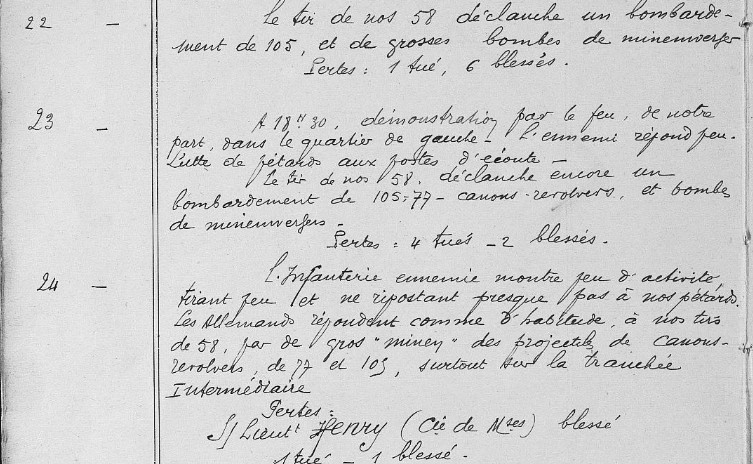 22 –
Le tir de nos 58 déclanche un bombarde-
ment de 105, et de grosses bombes de minenwerfer
Pertes : 1 tué, 6 blessés.
23 –
A 18h30, démonstration par le feu, de notre
part, dans le quartier de gauche – L'ennemi répond peu.
Lutte de pétards aux postes d'écoute –
Le tir de nos 58 déclanche encore un
bombardement de 105-77 – canons-revolvers, et bombes
de minenwerfers –
Pertes : 4 tués – 2 blessés.
24 –
L'Infanterie ennemie montre peu d'activité
tirant peu et ne ripostant presque pas à nos pétards.
Les Allemands répondent comme d'habitude, à nos tirs
de 58, par de gros "minen" des projectiles de canons-
revolvers, de 77 et 105, surtout sur la tranchée
Intermédiaire
Pertes :
S/Lieutt Henry (Cie de Mses) blessé
1 tué – 1 blessé.